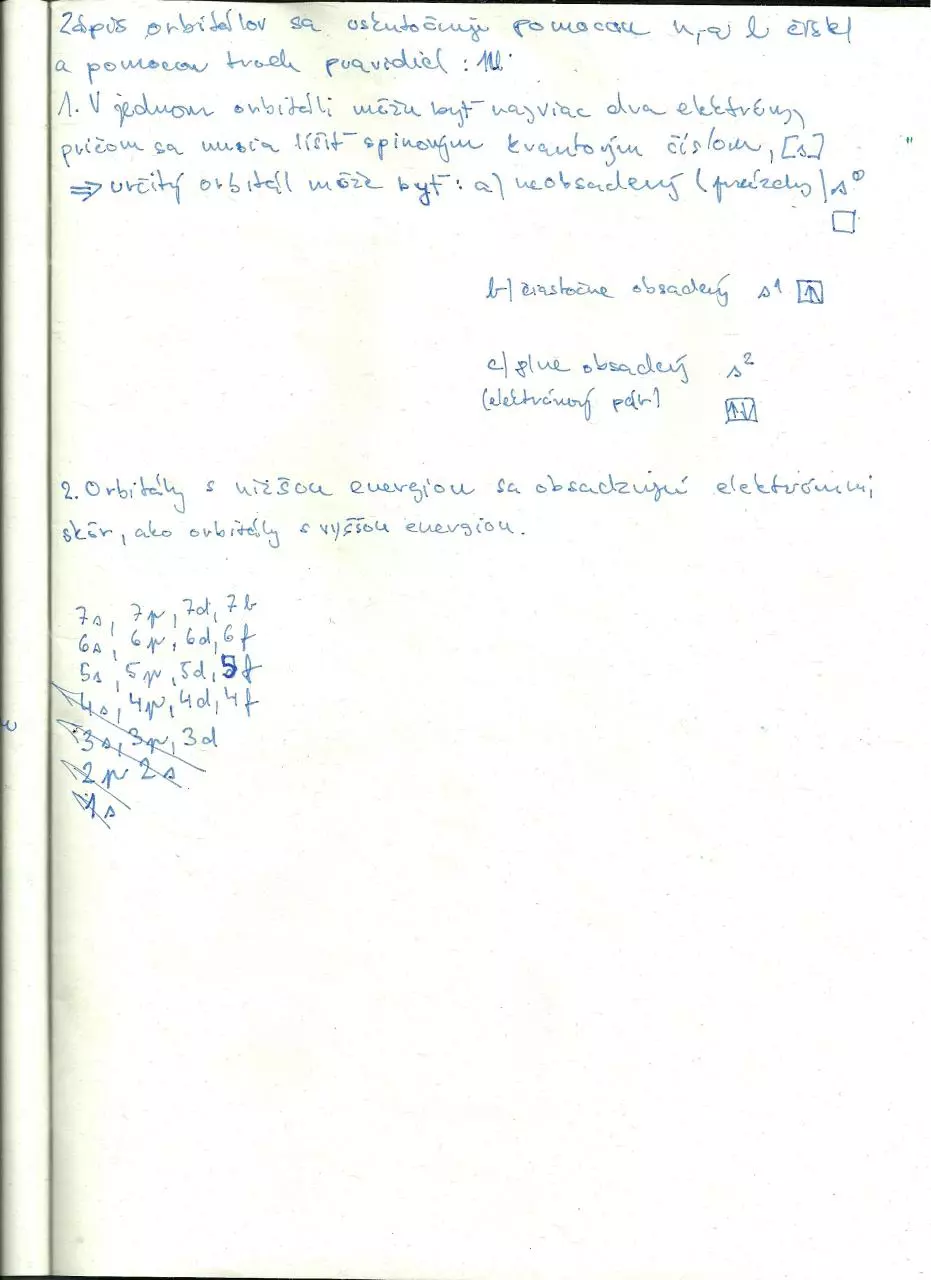 Zápis orbitálov sa uskutočňuje pomocou n, a l čísel
a pomocou troch pravidiel :
1. V jednom orbitáli môžu byť najviac dva elektróny,
pričom sa musia líšiť spinovým kvantovým číslom, [s]
⇒ určitý orbitál môže byť: a) neobsadený (prázdny) s⁰
b) čiastočne obsadený s¹ ↑
c) plne obsadený s²
(elektrónový pár) ↑↓
2. Orbitály s nižšou energiou sa obsadzujú elektrónmi,
skôr, ako orbitály s vyššou energiou.
7s, 7p, 7d, 7f
6s, 6p, 6d, 6f
5s, 5p, 5d, 5f
4s, 4p, 4d, 4f
3s, 3p, 3d
2p 2s
1s